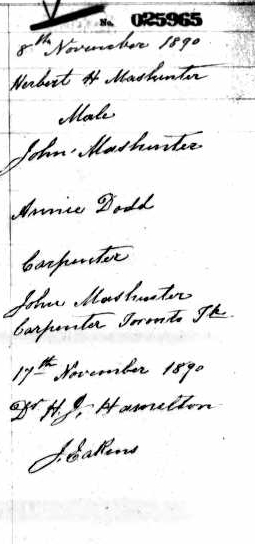 No. 025965
8th November 1890
Herbert H Mashunter
Male
John Mashunter
Annie Dodd
Carpenter
John Mashunter
Carpenter Toronto Jk
17th November 1890
Dr H. J. Hamelton
J. Eakins